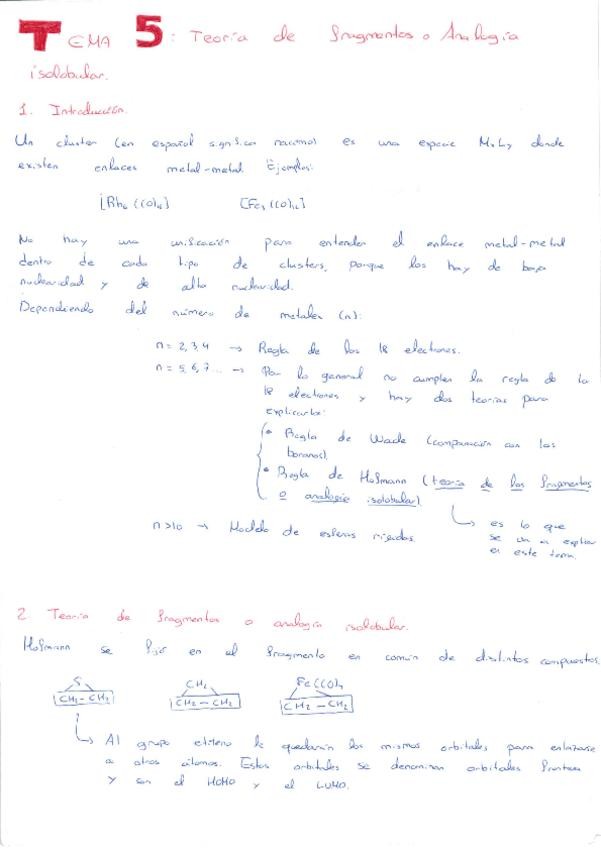 TEMA 5: Teoría de fragmentos o Analogía
isolobular.
1. Introducción.
Un cluster (en español significa racimo) es una especie MxLy donde
existen enlaces metal-metal Ejemplos:
[Rh6 (CO)16] [Fe3 (CO)12]
No hay una unificación para entender el enlace metal-metal
dentro de cada tipo de clusters, porque los hay de baja
nuclearidad y de alta nuclearidad.
Dependiendo del número de metales (n):
n = 2,3,4 → Regla de los 18 electrones.
n = 5,6,7... → Por lo general no cumplen la regla de los
18 electrones y hay dos teorías para
explicarlo:
• Regla de Wade (comparación con los
boranos).
• Regla de Hofmann (teoría de los fragmentos
o analogía isolobular)
n>10 → Modelo de esferas rígidas.
↳ es lo que
se va a explicar
en este tema.
2. Teoría de fragmentos o analogía isolobular.
Hofmann se fijó en el fragmento en común de distintos compuestos.
S CH2 Fe(CO)4
CH2-CH2 CH2-CH2 CH2-CH2
↳ Al grupo etileno le quedarán los mismos orbitales para enlazarse
a otros átomos. Estos orbitales se denominan orbitales frontera
y son el HOMO y el LUMO.